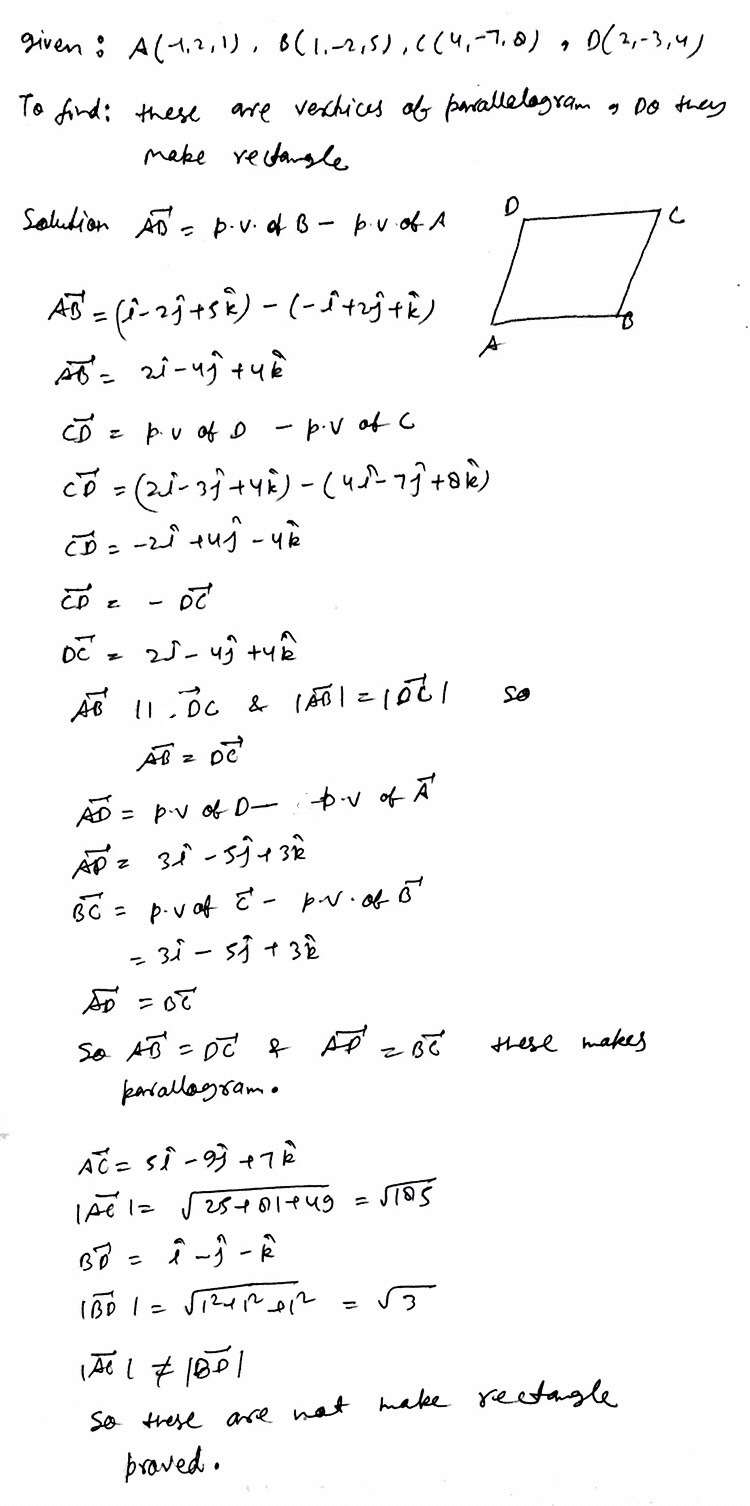 given : A(-1,2,1), B(1,-2,5), C(4,-7,8), D(2,-3,4)
To find: these are vertices of parallelogram, Do they
make rectangle
D
C
A
B
Solution $\vec{AB}$ = p.v. of B - p.v. of A
$\vec{AB}$ = (î-2ĵ+5k̂) - (-î+2ĵ+k̂)
$\vec{AB}$ = 2î-4ĵ+4k̂
$\vec{CD}$ = p.v of D - p.v of C
$\vec{CD}$ = (2î-3ĵ+4k̂) - (4î-7ĵ+8k̂)
$\vec{CD}$ = -2î+4ĵ-4k̂
$\vec{CD}$ = - $\vec{DC}$
$\vec{DC}$ = 2î-4ĵ+4k̂
$\vec{AB}$ || $\vec{DC}$ & |$\vec{AB}$| = |$\vec{DC}$| so
$\vec{AB}$ = $\vec{DC}$
$\vec{AD}$ = p.v of D - p.v of $\vec{A}$
$\vec{AD}$ = 3î-5ĵ+3k̂
$\vec{BC}$ = p.v of $\vec{C}$ - p.v. of $\vec{B}$
= 3î-5ĵ+3k̂
$\vec{AD}$ = $\vec{BC}$
So $\vec{AB}$ = $\vec{DC}$ & $\vec{AD}$ = $\vec{BC}$ these makes
parallogram.
$\vec{AC}$ = 5î-9ĵ+7k̂
|$\vec{AC}$| = √(25+81+49) = √185
$\vec{BD}$ = î-ĵ-k̂
|$\vec{BD}$| = √(1²+1²+1²) = √3
|$\vec{AC}$| ≠ |$\vec{BD}$|
So these are not make rectangle
proved.